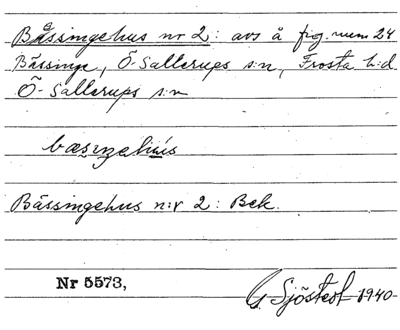 Bässingehus nr 2: avs å fig. rum 24
Bässinge, Ö-Sallerups s:n, Frosta h:d
Ö-Sallerups s:n
Bässingehus n:r 2: Bek.
Nr 5573,
G Sjöstedt 1940-